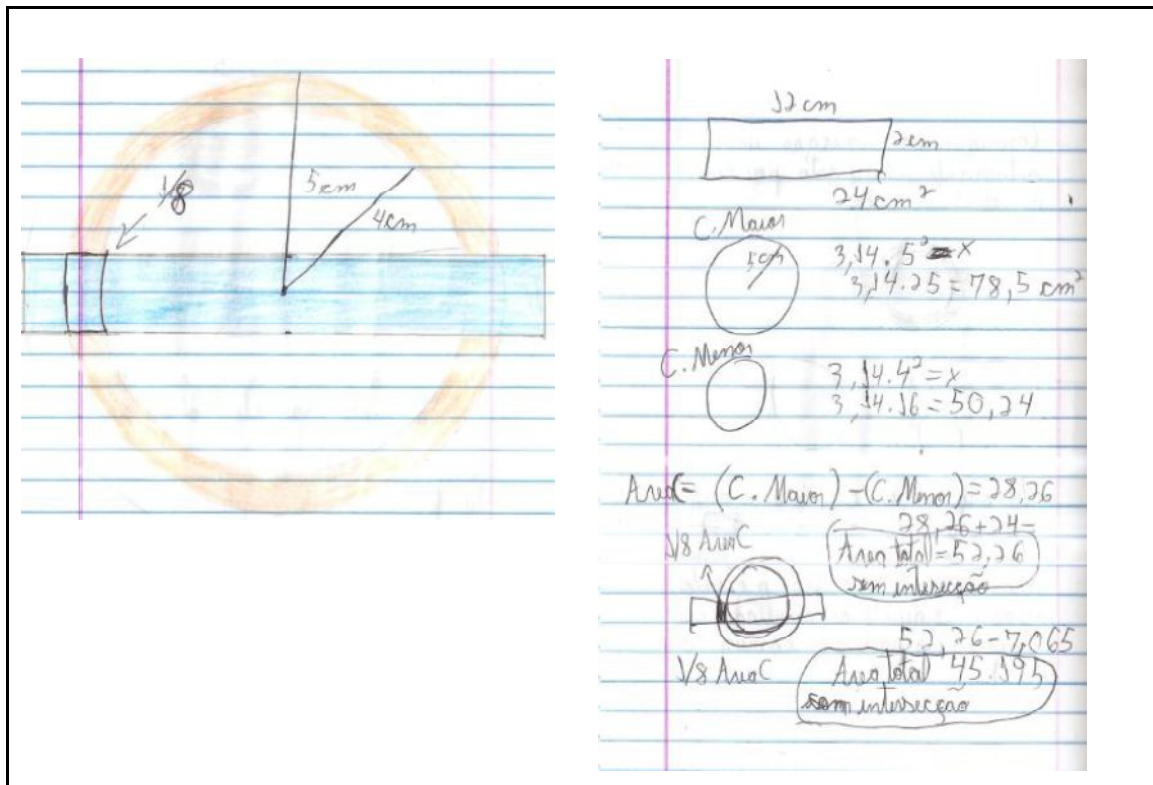 1/8
5cm
4cm
12cm
2cm
24cm²
C. Maior
5cm
3,14.5² = x
3,14.25 = 78,5 cm²
C. Menor
3,14.4² = x
3,14.16 = 50,24
AreaC = (C. Maior) - (C. Menor) = 28,26
28,26+24=
1/8 AreaC
Area total = 52,26
sem intersecção
52,26-7,065
1/8 AreaC
Area total 45.195
com intersecção